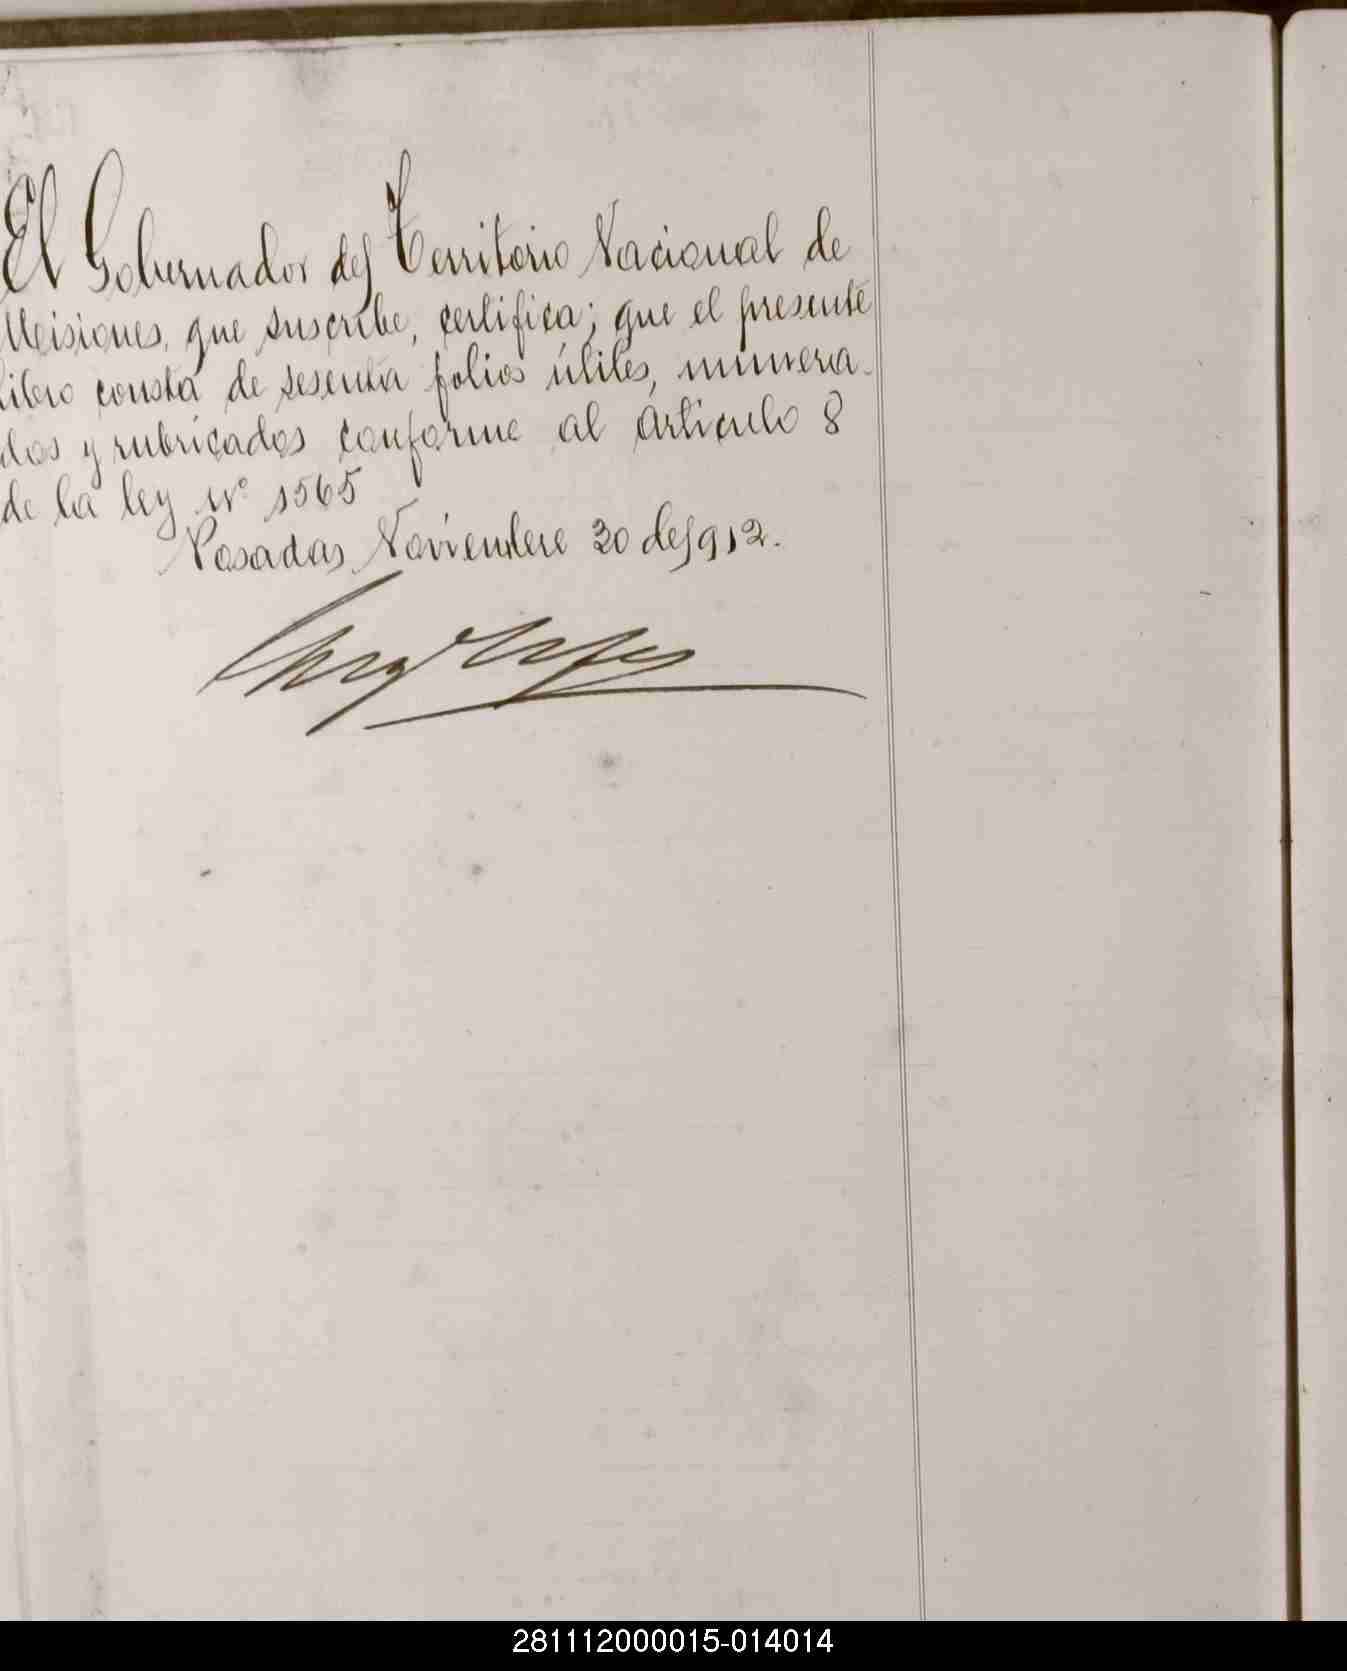 El Gobernador del Territorio Nacional de
Misiones, que suscribe, certifica; que el presente
libro consta de sesenta folios útiles, numera-
dos y rubricados conforme al artículo 8
de la ley Nº 1565
Posadas Noviembre 30 de 1912.
281112000015-014014